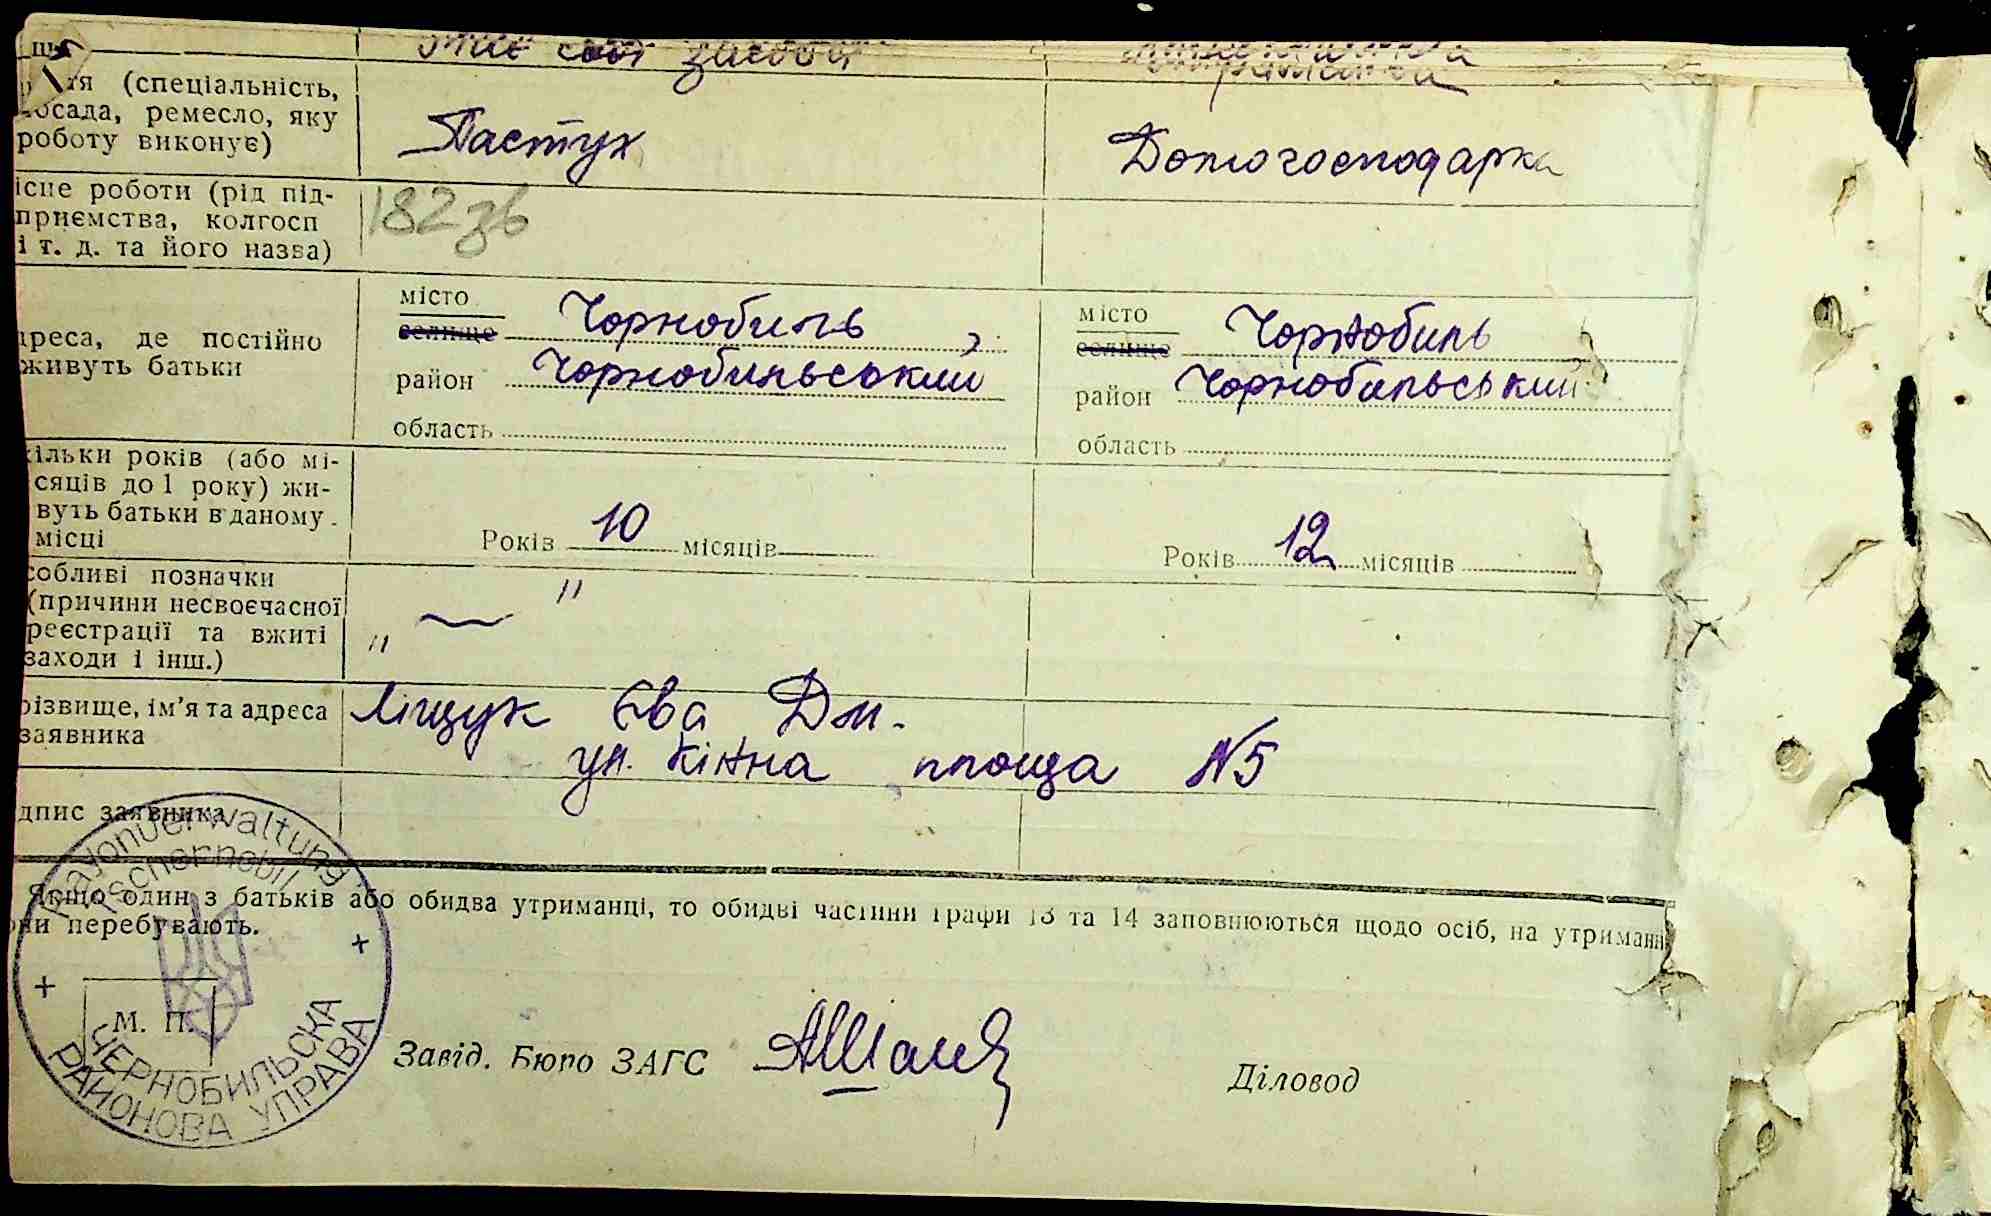 має свої засоби
тя (спеціальність,
посада, ремесло, яку
роботу виконує)
Пастух
Домогосподарка
ісце роботи (рід під-
приємства, колгосп
і т. д. та його назва)
182зв
дреса, де постійно
живуть батьки
місто
селище
Чорнобиль,
район Чорнобильський
область
місто
селище
Чорнобиль
район Чорнобильський
область
кільки років (або мі-
сяців до 1 року) жи-
вуть батьки в даному
місці
Років 10 місяців
Років 12 місяців
собливі позначки
(причини несвоєчасної
реєстрації та вжиті
заходи і інш.)
" — "
різвище, ім'я та адреса
заявника
Ліщук Єва Дм.
ул. Кінна площа №5
дпис заявника
Rayonverwaltung
Tschernobil
Якщо один з батьків або обидва утриманці, то обидві частини графи 13 та 14 заповнюються щодо осіб, на утриманні
они перебувають.
М. П.
ЧЕРНОБИЛЬСКА
РАЙОНОВА УПРАВА
Завід. Бюро ЗАГС
Діловод